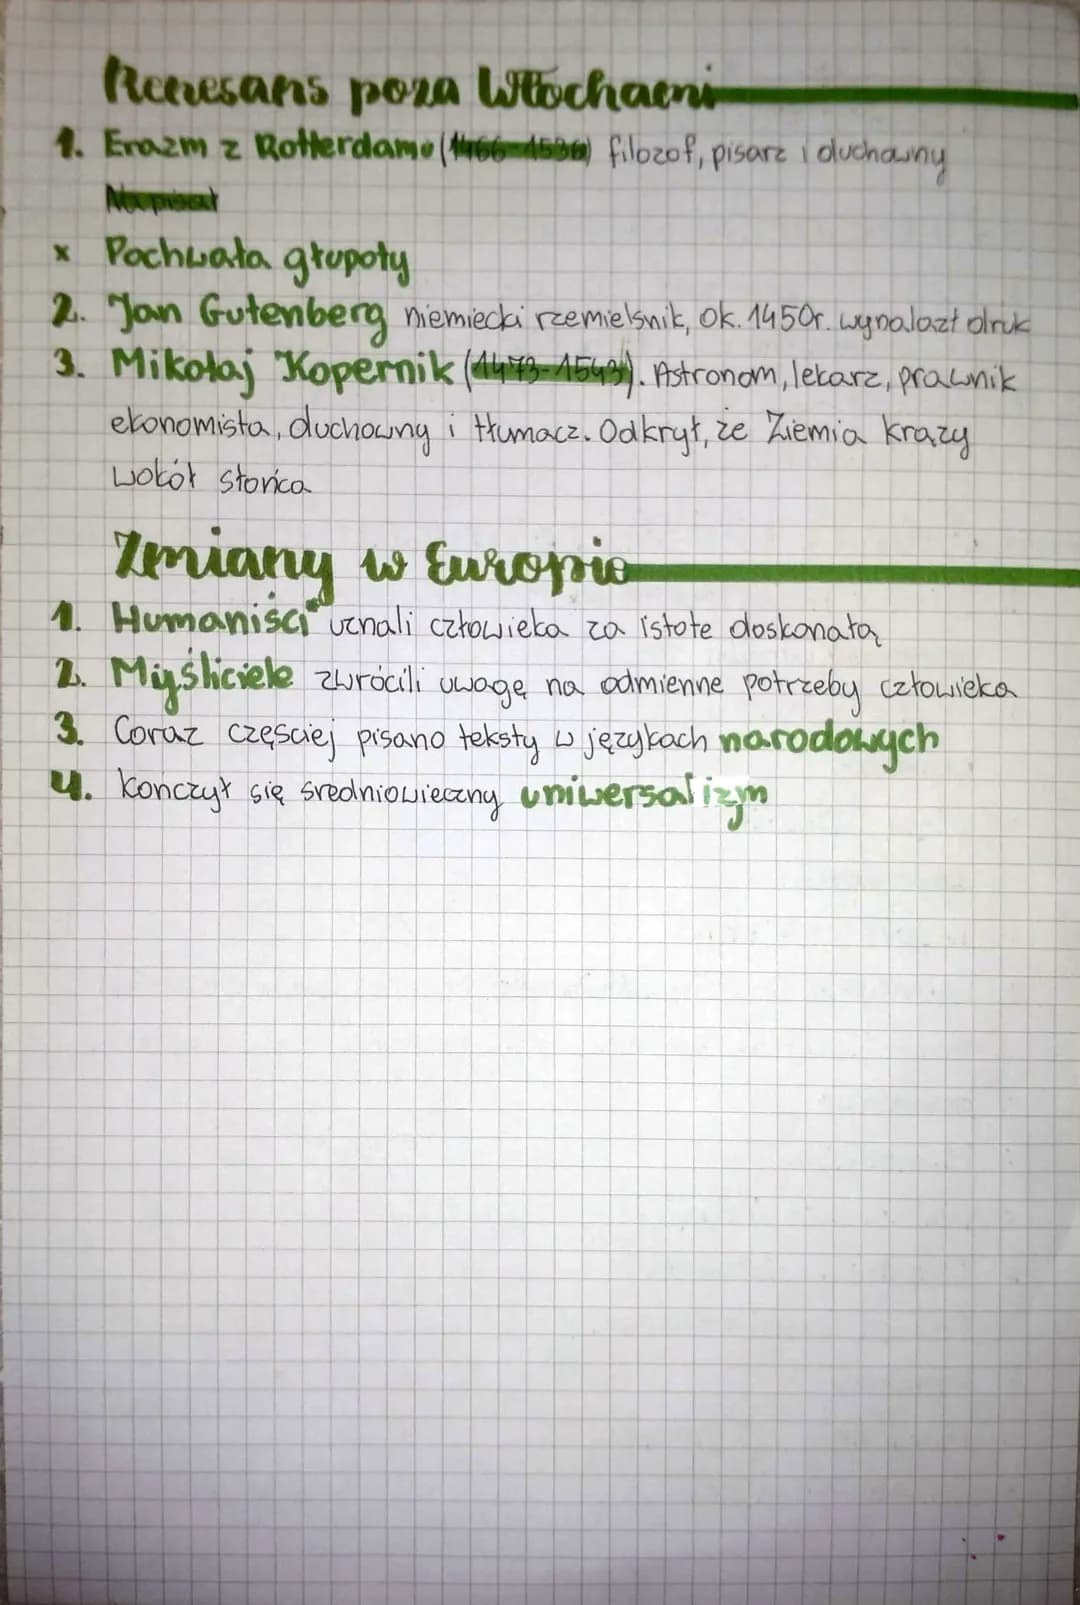 Renesans poza Włochami
1. Erazm z Rotterdamu (1466-1536) filozof, pisarz i duchowny
Napisał
x Pochwała głupoty
2. Jan Gutenberg niemiecki rzemielsnik, ok. 1450r. wynalazł druk
3. Mikołaj Kopernik (1473-1543). Astronom, lekarz, prawnik
ekonomista, duchowny i tłumacz. Odkrył, że Ziemia krązy
wokół słońca
Zmiany w Europie
1. Humaniści uznali człowieka za istote doskonałą
2. Myśliciele zwrócili uwagę na odmienne potrzeby człowieka
3. Coraz częsciej pisano teksty w językach narodowych
4. kończył się sredniowieczny uniwersalizm